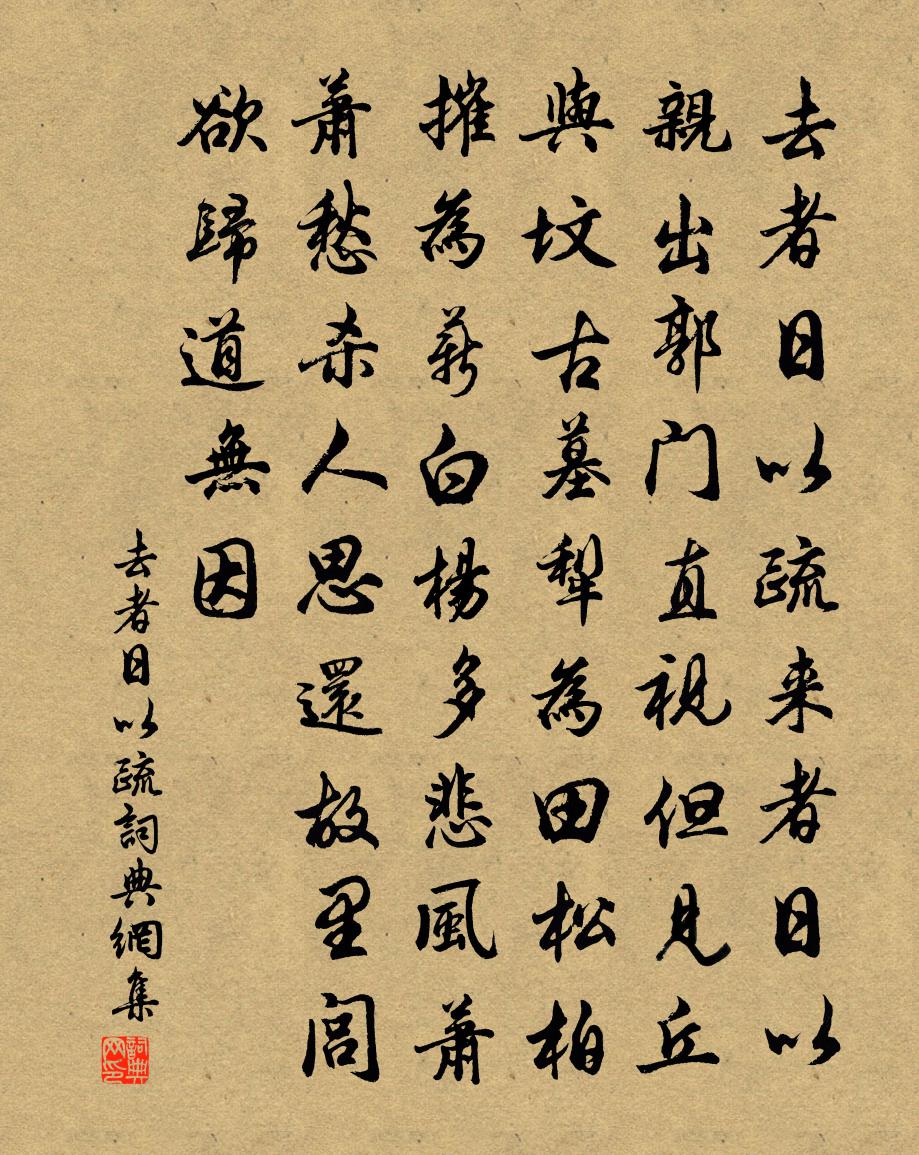 去者日以疏来者日以
親出郭门直視但見丘
與坟古墓犁為田松柏
摧為薪白楊多悲風蕭
蕭愁杀人思還故里閭
欲歸道無因
去者日以疏詞典網集
詞典网印